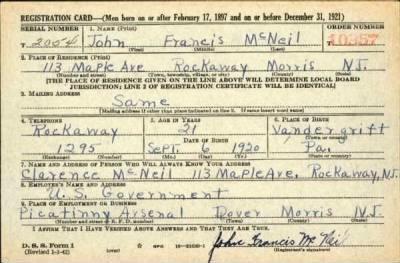 REGISTRATION CARD—(Men born on or after February 17, 1897 and on or before December 31, 1921)
SERIAL NUMBER 1. NAME (Print) ORDER NUMBER
T 2004 John Francis McNeil 10357
(First) (Middle) (Last)
2. PLACE OF RESIDENCE (Print)
113 Maple Ave Rockaway Morris N.J.
(Number and street) (Town, township, village, or city) (County) (State)
[THE PLACE OF RESIDENCE GIVEN ON THE LINE ABOVE WILL DETERMINE LOCAL BOARD
JURISDICTION; LINE 2 OF REGISTRATION CERTIFICATE WILL BE IDENTICAL]
3. MAILING ADDRESS
Same
(Mailing address if other than place indicated on line 2. If same insert word same)
4. TELEPHONE 5. AGE IN YEARS 6. PLACE OF BIRTH
Rockaway 21 Vandergrift
DATE OF BIRTH (Town or county)
1295 Sept. 6 1920 Pa.
(Exchange) (Number) (Mo.) (Day) (Yr.) (State or country)
7. NAME AND ADDRESS OF PERSON WHO WILL ALWAYS KNOW YOUR ADDRESS
Clarence McNeil 113 Maple Ave, Rockaway, N.J.
8. EMPLOYER'S NAME AND ADDRESS
U.S. Government
9. PLACE OF EMPLOYMENT OR BUSINESS
Picatinny Arsenal Dover Morris N.J.
(Number and street or R. F. D. number) (Town) (County) (State)
I AFFIRM THAT I HAVE VERIFIED ABOVE ANSWERS AND THAT THEY ARE TRUE.
D. S. S. Form 1
(Revised 1-1-42) (over) John Francis McNeil
(Registrant's signature)